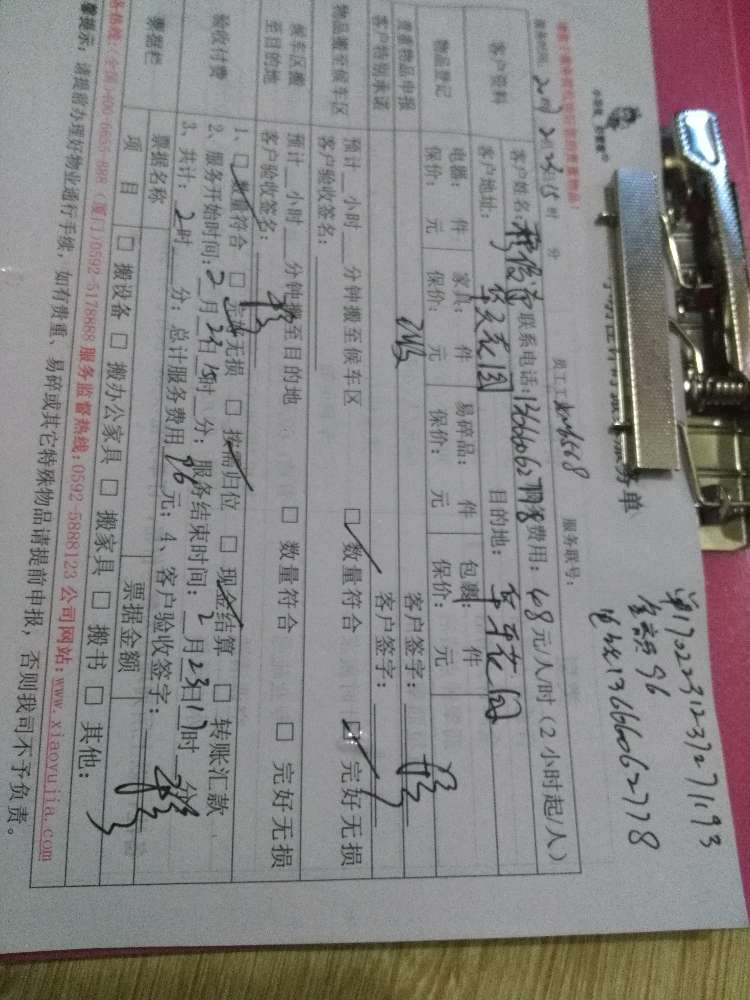 单170223123727193
金额96
电话13666062778
小羽佳 好管家
务单
服务时间：2017 2 23 15 时 分
员工工
服务联号：
客户资料
客户姓名： 联系电话：13666062778 服务费用：48元/人/时（2小时起/人）
客户地址： 目的地：
物品登记
电器： 件 家具： 件 易碎品： 件 包裹： 件
保价： 元 保价： 元 保价： 元 保价： 元
贵重物品申报 没 客户签字：
客户特别承诺 客户签字：
物品搬至候车区
预计__小时__分钟搬至候车区 □ 数量符合 □ 完好无损
客户验收签名：
候车区搬至目的地
预计__小时__分钟搬至目的地 □ 数量符合 □ 完好无损
客户验收签名：
验收付费
1、□ 数量符合 □ 完好无损 □ 按需归位 □ 现金结算 □ 转账汇款
2、服务开始时间：2月23日15时 分；服务结束时间：2月23日17时 分
3、共计：2时__分；总计服务费用 96元；4、客户验收签字：
票据栏
票据名称 票据金额
项 目 □ 搬设备 □ 搬办公家具 □ 搬家具 □ 搬书 □ 其他：
务热线：(全国)400-6655-888 (厦门)0592-5178888 服务监督热线：0592-5888123 公司网站：www.xiaoyujia.com
馨提示：请提前办理好物业通行手续，如有贵重、易碎或其它特殊物品请提前申报，否则我司不予负责。